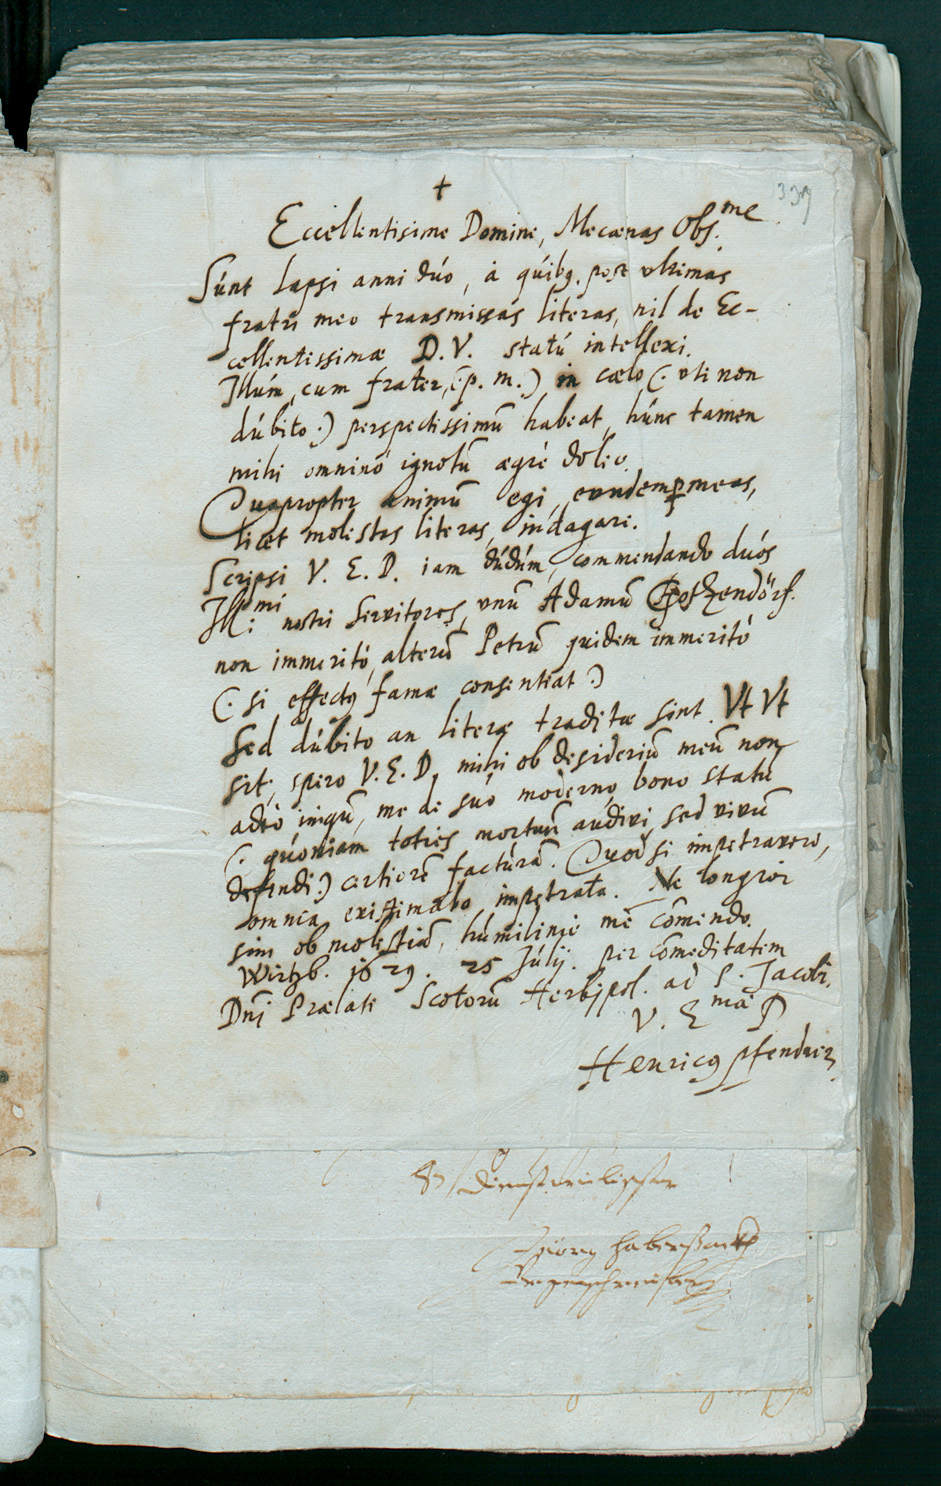 339
+
Eccellentisime Domine, Mecænas Obs.me
Súnt lapsi anni dúo, à qúibꝫ. post vltimas
fratri meo transmissas literas, nil de Ec-
cellentissimæ D. V. statú intellexi.
Illúm, cum frater, (p. m.) in cælo (: vti non
dúbito :) perspectissimũ habeat, húnc tamen
mihi omninò ignotũ ægrè doleo.
Quapropter animũ egi, eundem ꝑ meas,
licet molestas literas, indagari.
Scripsi V. E. D. iam dúdúm, commendando dúos
Ill:mi nostri servitores, vnũ Adamũ
non immeritò, alterũ Petrũ quidem immeritò
(: si effectꝰ famæ consentiat :)
Sed dúbito an literæ traditæ sint. Vt Vt
sit, spero V. E. D. mihi ob desideriũ meũ non
adeò iniqũ, me de súo moderno bono statu
(: qúoniam toties mortuũ audivi, sed vivũ
defendi :) certiorẽ factúrã. Quod si impetravero,
omnia existimabo impetrata. Ne longior
sim ob molestiã, húmilimè me cõmendo.
Wirtzb. 1629. 25 Júlij. per cõmeditatem
Dnj Prælati Scotorũ Herbipol. ad S. Jacobi.
V. E ma D
Henricꝰ Pfendner
Georg